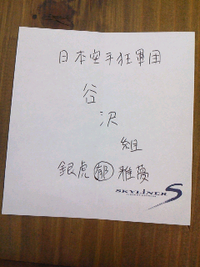 日本空手狂軍団
谷
沢
組
銀虎 郁 雅憂
SKYLINER S